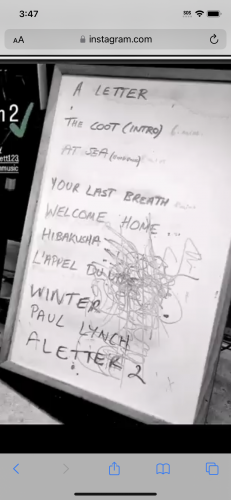 3:47
SOS
AA instagram.com
A LETTER
THE COOT (INTRO)
AT SEA
YOUR LAST BREATH
WELCOME HOME
HIBAKUSHA
L'APPEL DU
WINTER
PAUL LYNCH
A LETTER 2
n 2
ett123
music